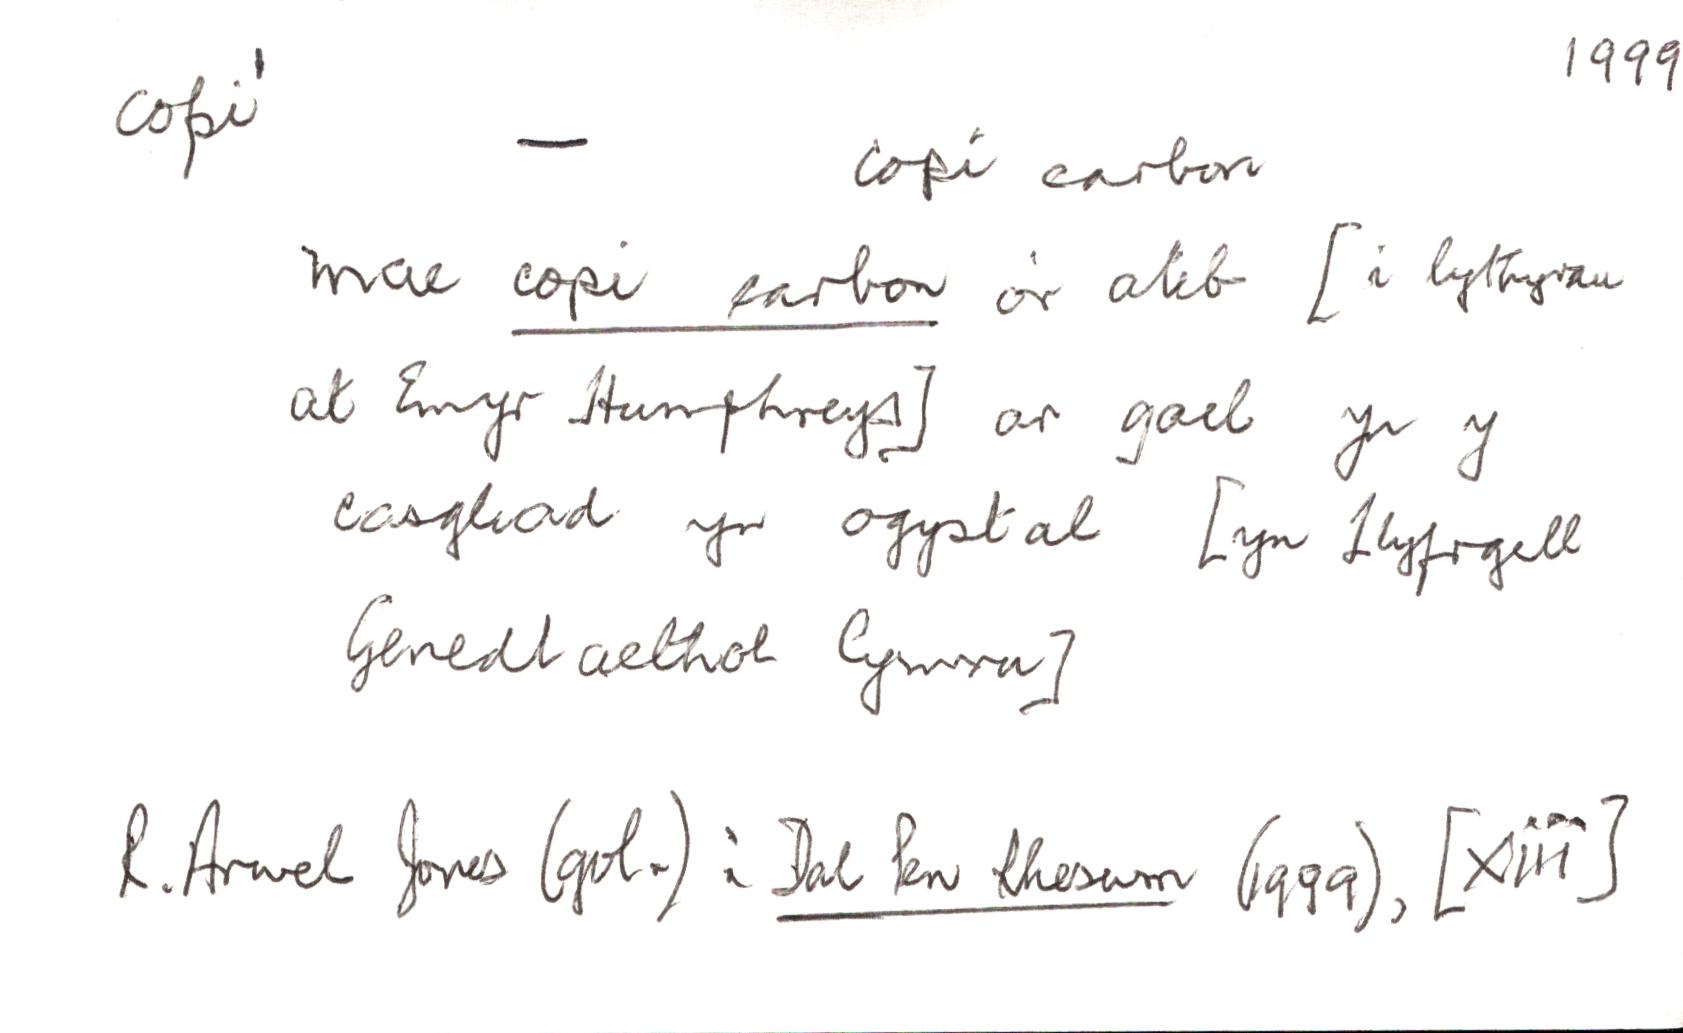 1999
copi¹
— copi carbon
Mae copi carbon o'r ateb [i lythyrau
at Emyr Humphreys] ar gael yn y
casgliad yn ogystal [yn Llyfrgell
Genedlaethol Cymru]
R. Arwel Jones (gol.) : Dal Pen Rheswm (1999), [xiii]